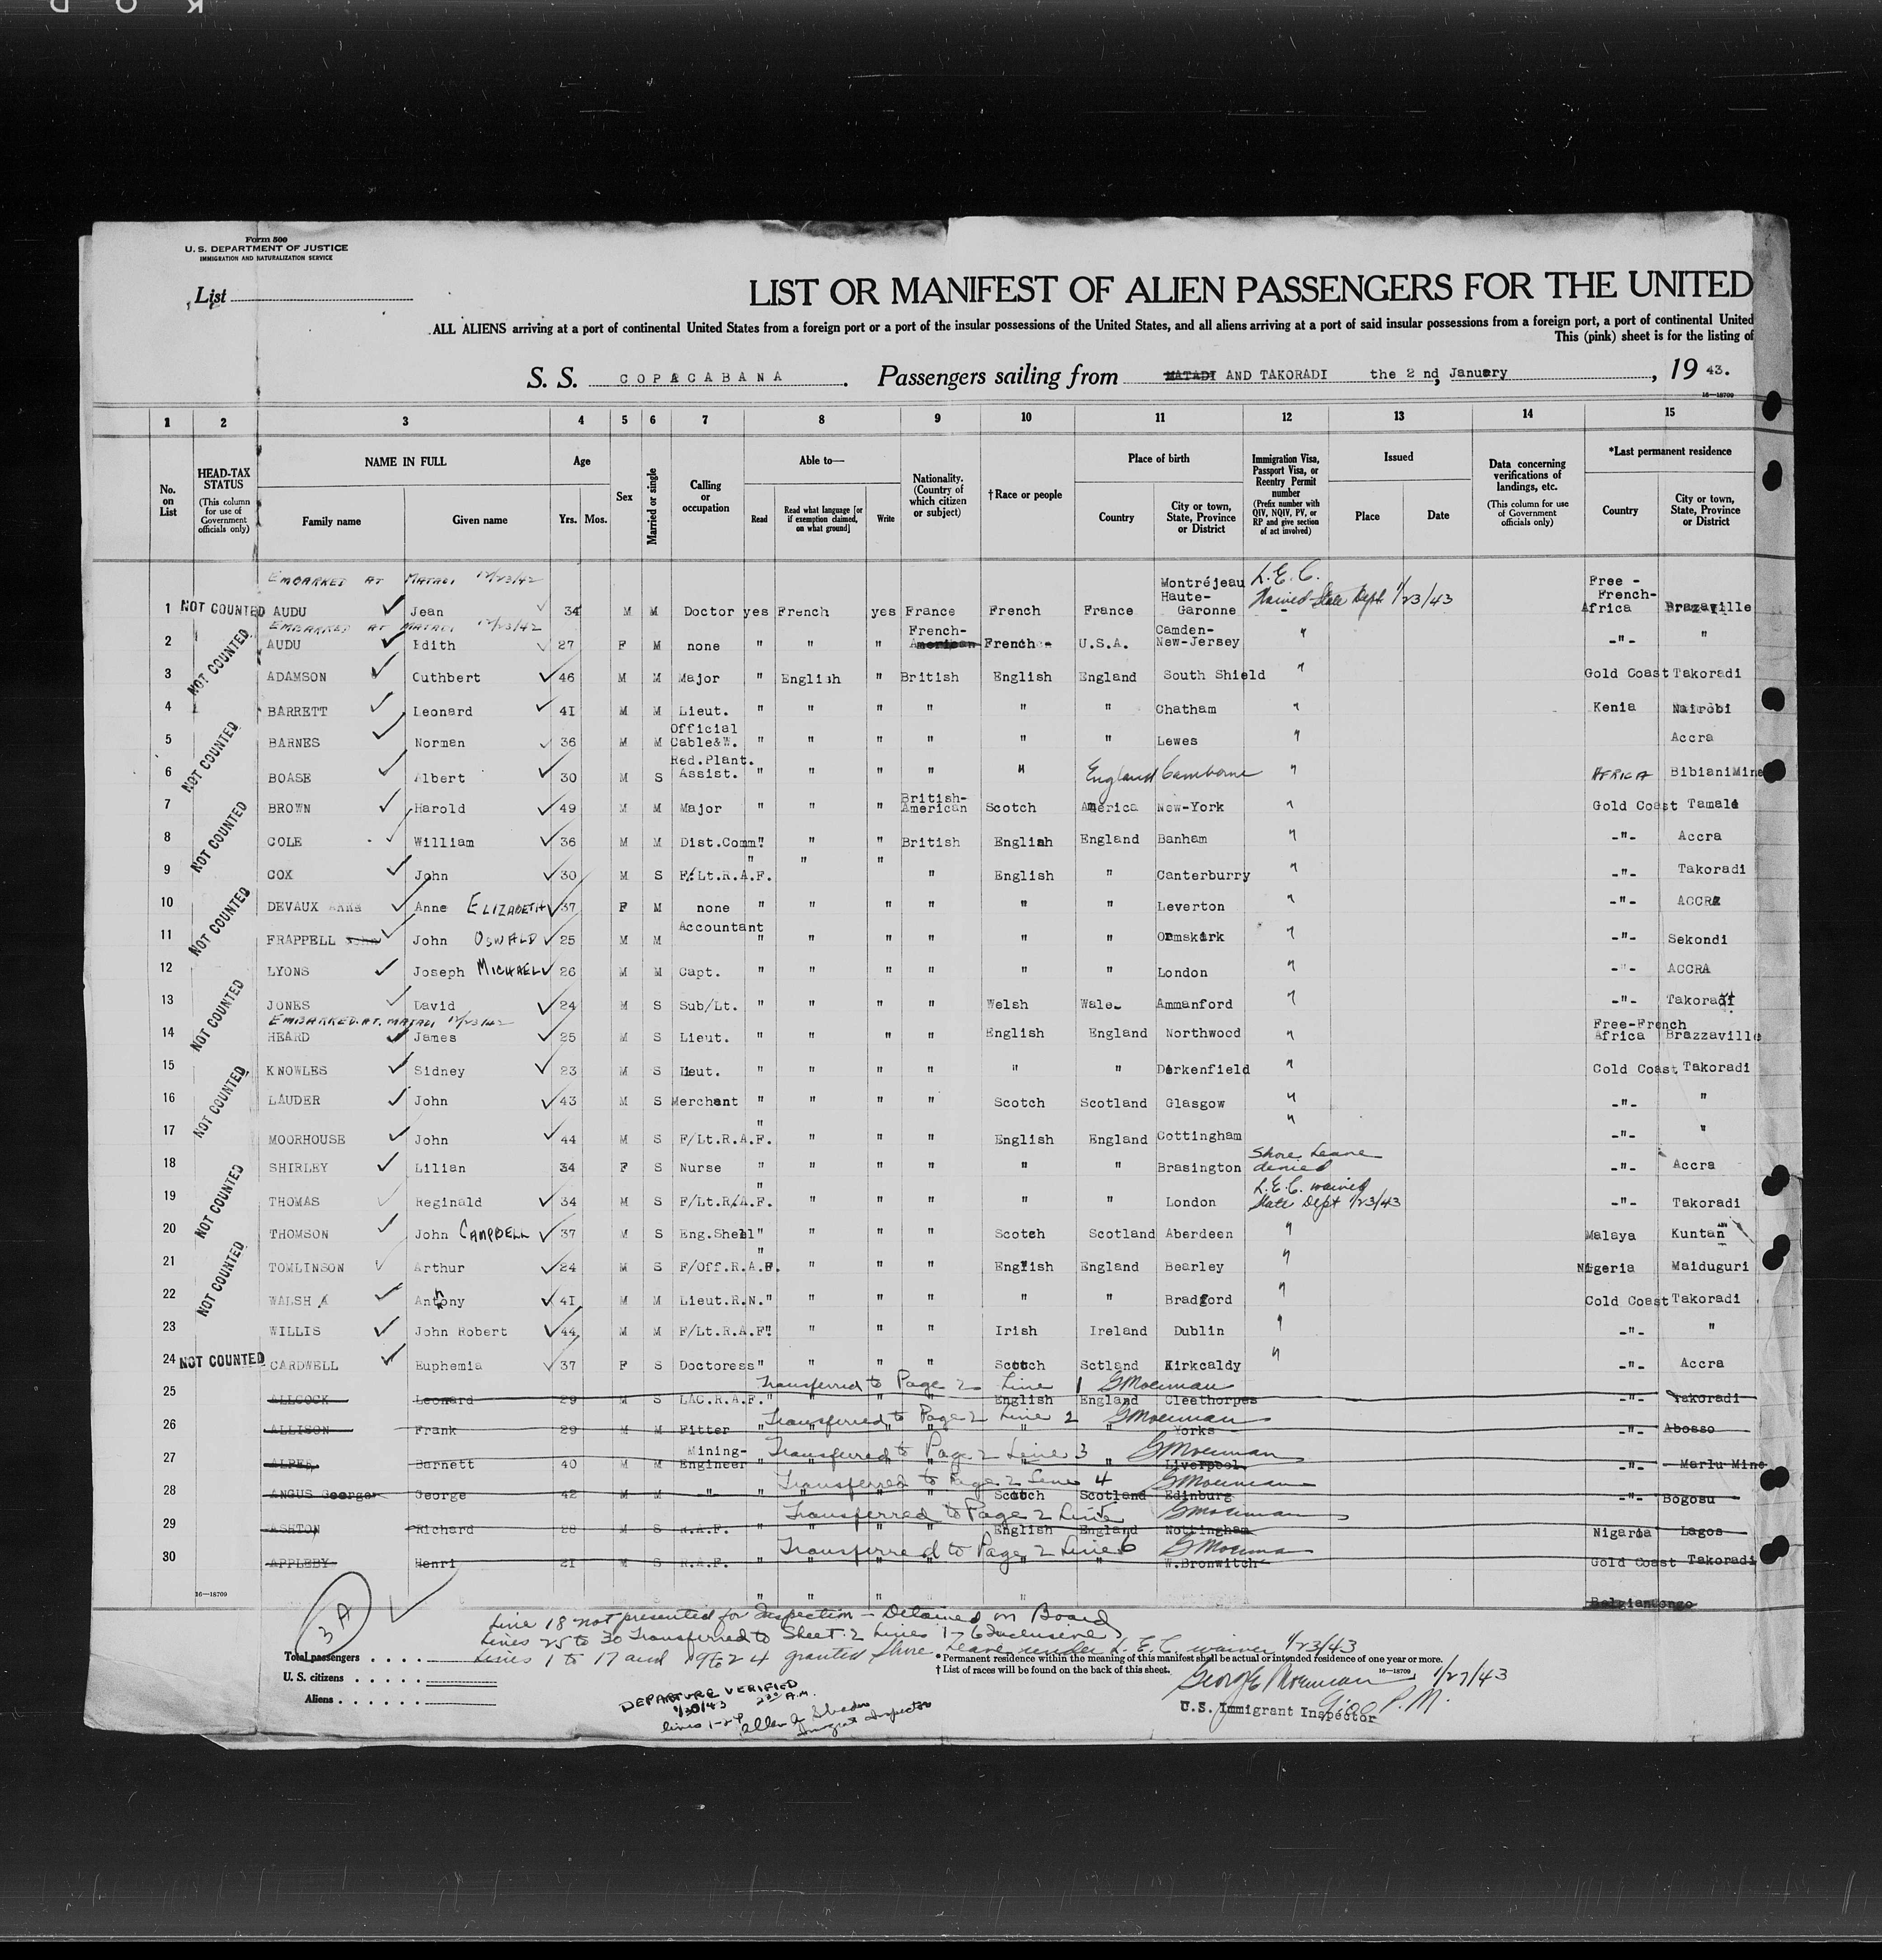 Form 500
U. S. DEPARTMENT OF JUSTICE
IMMIGRATION AND NATURALIZATION SERVICE
List
LIST OR MANIFEST OF ALIEN PASSENGERS FOR THE UNITED
ALL ALIENS arriving at a port of continental United States from a foreign port or a port of the insular possessions of the United States, and all aliens arriving at a port of said insular possessions from a foreign port, a port of continental United
This (pink) sheet is for the listing of
S. S. COPACABANA. Passengers sailing from MATADI AND TAKORADI the 2 nd January, 19 43.
16—18709
1 2 3 4 5 6 7 8 9 10 11 12 13 14 15
No. on List
HEAD-TAX STATUS (This column for use of Government officials only)
NAME IN FULL
Family name
Given name
Age
Yrs. Mos.
Sex
Married or single
Calling or occupation
Able to—
Read
Read what language [or if exemption claimed, on what ground]
Write
Nationality. (Country of which citizen or subject)
†Race or people
Place of birth
Country
City or town, State, Province or District
Immigration Visa, Passport Visa, or Reentry Permit number (Prefix number with QIV, NQIV, PV, or RP and give section of act involved)
Issued
Place
Date
Data concerning verifications of landings, etc. (This column for use of Government officials only)
*Last permanent residence
Country
City or town, State, Province or District
EMBARKET AT MATADI 12/23/42
1 NOT COUNTED AUDU Jean 34 M M Doctor yes French yes France French France Montréjeau Haute-Garonne L.E.C. Waived State Dept 1/23/43 Free-French-Africa Brazaville
EMBARKED AT MATADI 12/23/42
2 NOT COUNTED AUDU Edith 27 F M none " " " French-American French U.S.A. Camden-New-Jersey " -"- "
3 ADAMSON Cuthbert 46 M M Major " English " British English England South Shield " Gold Coast Takoradi
4 BARRETT Leonard 41 M M Lieut. " " " " " " Chatham " Kenia Nairobi
5 NOT COUNTED BARNES Norman 36 M M Official Cable&W. " " " " " " Lewes " Accra
6 BOASE Albert 30 M S Red.Plant. Assist. " " " " " England Camborne " AFRICA BibianiMine
7 NOT COUNTED BROWN Harold 49 M M Major " " " British-American Scotch America New-York " Gold Coast Tamale
8 COLE William 36 M M Dist.Comm. " " " British English England Banham " -"- Accra
9 COX John 30 M S F/Lt.R.A.F. " " " " English " Canterburry " -"- Takoradi
10 NOT COUNTED DEVAUX Anne ELIZABETH 37 F M none " " " " " " Leverton " -"- ACCRA
11 FRAPPELL John OSWALD 25 M M Accountant " " " " " " Ormskirk " -"- Sekondi
12 LYONS Joseph MICHAEL 26 M M Capt. " " " " " " London " -"- ACCRA
13 NOT COUNTED JONES David 24 M S Sub/Lt. " " " " Welsh Wale- Ammanford " -"- Takoradi
EMBARKED AT MATADI 12/23/42
14 HEARD James 25 M S Lieut. " " " " English England Northwood " Free-French Africa Brazzaville
15 KNOWLES Sidney 23 M S Lieut. " " " " " " Dirkenfield " Cold Coast Takoradi
16 NOT COUNTED LAUDER John 43 M S Merchant " " " " Scotch Scotland Glasgow " -"- "
17 MOORHOUSE John 44 M S F/Lt.R.A.F. " " " " English England Cottingham " -"- "
18 SHIRLEY Lilian 34 F S Nurse " " " " " " Brasington Shore Leave denied -"- Accra
19 NOT COUNTED THOMAS Reginald 34 M S F/Lt.R/A.F. " " " " " " London L.E.C. waived State Dept 1/23/43 -"- Takoradi
20 THOMSON John CAMPBELL 37 M S Eng.Shell " " " " Scotch Scotland Aberdeen " Malaya Kuntan
21 NOT COUNTED TOMLINSON Arthur 24 M S F/Off.R.A.F. " " " " English England Bearley " Nigeria Maiduguri
22 WALSH A Antony 41 M M Lieut.R.N. " " " " " " Bradford " Cold Coast Takoradi
23 WILLIS John Robert 44 M M F/Lt.R.A.F. " " " " Irish Ireland Dublin " -"- "
24 NOT COUNTED CARDWELL Euphemia 37 F S Doctoress " " " " Scotch Sctland Kirkcaldy " -"- Accra
Transferred to Page 2 Line 1 GMoerman
25 ALLCOCK Leonard 29 M S LAC.R.A.F. " " " " English England Cleethorpes -"- Takoradi
Transferred to Page 2 Line 2 GMoerman
26 ALLISON Frank 29 M M Fitter " " " " " " Yorks -"- Abosso
Transferred to Page 2 Line 3 GMoerman
27 ALPES Barnett 40 M M Mining-Engineer " " " " " " Liverpool -"- Marlu Mine
Transferred to Page 2 Line 4 GMoerman
28 ANGUS George George 42 M M -"- " " " " Scotch Scotland Edinburg -"- Bogosu
Transferred to Page 2 Line 5 GMoerman
29 ASHTON Richard 28 M S R.A.F. " " " " English England Nottingham Nigaria Lagos
Transferred to Page 2 Line 6 GMoerman
30 APPLEBY Henri 21 M S R.A.F. " " " " " " W.Bronwitch Gold Coast Takoradi
16—18709 " " " " BelgianCongo
3 A
Line 18 not presented for Inspection - Detained on Board
Lines 25 to 30 Transferred to Sheet 2 Lines 1-6 Inclusive
Lines 1 to 17 and 19 to 24 granted Shore Leave under L.E.C. waiver 1/23/43
Total passengers
U. S. citizens
Aliens
* Permanent residence within the meaning of this manifest shall be actual or intended residence of one year or more.
† List of races will be found on the back of this sheet.
16—18709
George Moerman 1/27/43
U.S. Immigrant Inspector P.M.
DEPARTURE VERIFIED
1/30/43 A.M.
lines 1-24
Immigrant Inspector